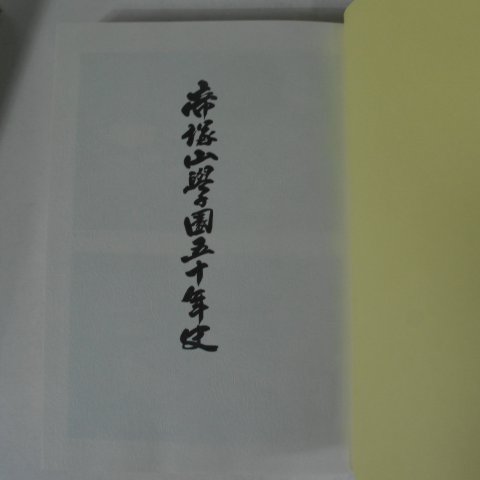 帝塚山學園五十年史